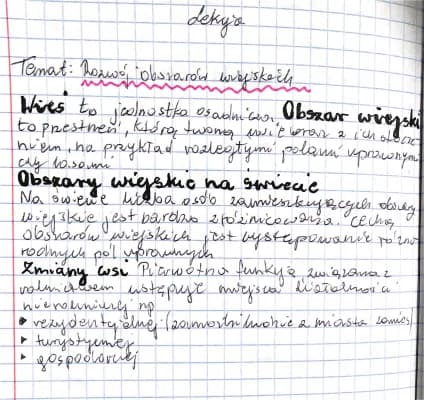 Lekcja
Temat: Rozwój obszarów wiejskich
Wieś to jednostka osadnicza. Obszar wiejski
to przestrzeń, którą tworzą wsie wraz z ich otocze-
niem, na przykład rozległymi polami uprawnymi
czy lasami
Obszary wiejskie na świecie
Na świecie liczba osób zamieszkujących obszary
wiejskie jest bardzo zróżnicowana. Cechą
obszarów wiejskich jest występowanie różno-
rodnych pól uprawnych
Zmiany wsi Pierwotna funkcja związana z
rolnictwem ustępuje miejsca działalności
nierolniczej np
• rezydentalnej (zamożni ludzie z miasta
• turystycznej
• gospodarczej